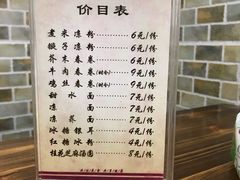 价目表
煮米凉粉 6元/份
猴子凉粉 6元/份
芥末春卷 6元/份
牛肉春卷(时令) 9元/份
鸡丝春卷(时令) 9元/份
甜水面 7元/份
凉面 7元/份
凉荞面 7元/份
冰糖银耳 4元/份
红糖冰粉 4元/份
桂花芝麻汤圆 8元/份